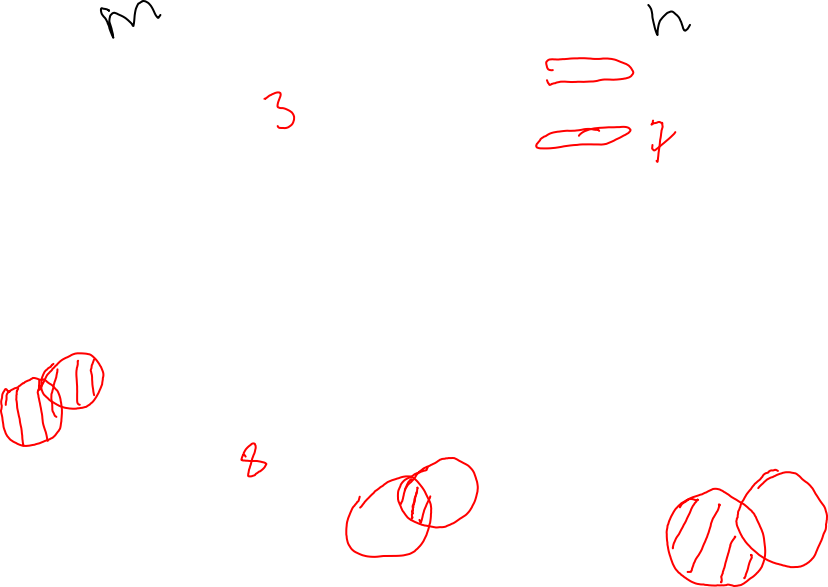 m n
3
7
8